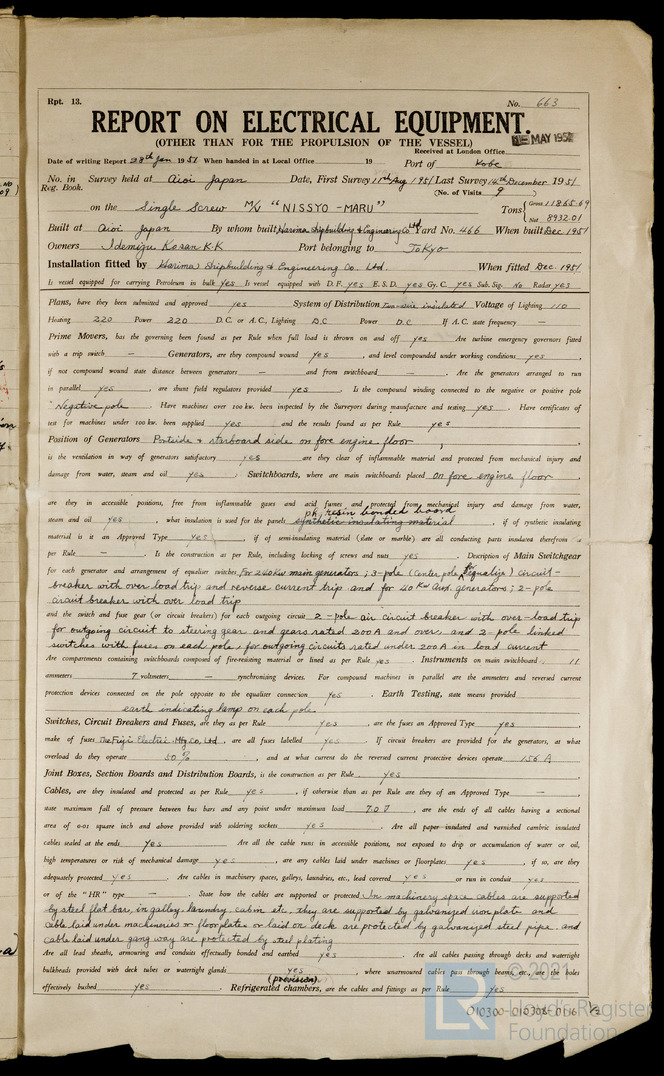 Rpt. 13.
No. 663
REPORT ON ELECTRICAL EQUIPMENT.
(OTHER THAN FOR THE PROPULSION OF THE VESSEL)
MAY 195
Received at London Office
Date of writing Report 28th Jan 1951 When handed in at Local Office 19 Port of Kobe
No. in Survey held at Aioi Japan Date, First Survey 11th Aug 1951 Last Survey 14th December 1951
Reg. Book. (No. of Visits 9
on the Single Screw M/V "NISSYO-MARU" Tons { Gross 11865.69
Net 8932.01
Built at Aioi Japan By whom built Harima Shipbuilding & Engineering Co Ltd Yard No. 466 When built Dec. 1951
Owners Idemizu Kosan K.K Port belonging to Tokyo
Installation fitted by Harima Shipbuilding & Engineering Co. Ltd. When fitted Dec. 1951
Is vessel equipped for carrying Petroleum in bulk yes Is vessel equipped with D.F. yes E.S.D. yes Gy.C. yes Sub.Sig. No Radar yes
Plans, have they been submitted and approved yes System of Distribution Two-wire insulated Voltage of Lighting 110
Heating 220 Power 220 D.C. or A.C., Lighting D.C Power D.C If A.C. state frequency —
Prime Movers, has the governing been found as per Rule when full load is thrown on and off yes Are turbine emergency governors fitted
with a trip switch — Generators, are they compound wound yes, and level compounded under working conditions yes,
if not compound wound state distance between generators — and from switchboard — Are the generators arranged to run
in parallel yes, are shunt field regulators provided yes. Is the compound winding connected to the negative or positive pole
Negative pole. Have machines over 100 kw. been inspected by the Surveyors during manufacture and testing yes. Have certificates of
test for machines under 100 kw. been supplied yes and the results found as per Rule yes
Position of Generators Portside & starboard side on fore engine floor,
is the ventilation in way of generators satisfactory yes are they clear of inflammable material and protected from mechanical injury and
damage from water, steam and oil yes; Switchboards, where are main switchboards placed On fore engine floor
are they in accessible positions, free from inflammable gases and acid fumes and protected from mechanical injury and damage from water,
ph. resin bonded board
steam and oil yes, what insulation is used for the panels synthetic insulating material, if of synthetic insulating
material is it an Approved Type yes, if of semi-insulating material (slate or marble) are all conducting parts insulated therefrom as
per Rule — Is the construction as per Rule, including locking of screws and nuts yes. Description of Main Switchgear
for each generator and arrangement of equaliser switches For 240 KW main generators; 3-pole (Center pole to equalize) circuit-
breaker with over load trip and reverse current trip and for 40 KW Aux. generators; 2-pole
circuit breaker with over load trip
and the switch and fuse gear (or circuit breakers) for each outgoing circuit 2-pole air circuit breaker with over-load trip
for outgoing circuit to steering gear and gears rated 200A and over, and 2-pole linked
switches with fuses on each pole, for outgoing circuits rated under 200A in load current
Are compartments containing switchboards composed of fire-resisting material or lined as per Rule yes. Instruments on main switchboard 11
ammeters 7 voltmeters — synchronizing devices. For compound machines in parallel are the ammeters and reversed current
protection devices connected on the pole opposite to the equaliser connection yes. Earth Testing, state means provided
earth indicating lamp on each pole
Switches, Circuit Breakers and Fuses, are they as per Rule yes, are the fuses an Approved Type yes,
make of fuses The Fuji Electric Mfg. Co, Ltd, are all fuses labelled yes If circuit breakers are provided for the generators, at what
overload do they operate 50 %, and at what current do the reversed current protective devices operate 156 A
Joint Boxes, Section Boards and Distribution Boards, is the construction as per Rule yes,
Cables, are they insulated and protected as per Rule yes, if otherwise than as per Rule are they of an Approved Type —,
state maximum fall of pressure between bus bars and any point under maximum load 7.0 V, are the ends of all cables having a sectional
area of 0.01 square inch and above provided with soldering sockets yes Are all paper insulated and varnished cambric insulated
cables sealed at the ends yes Are all the cable runs in accessible positions, not exposed to drip or accumulation of water or oil,
high temperatures or risk of mechanical damage yes, are any cables laid under machines or floorplates yes, if so, are they
adequately protected yes. Are cables in machinery spaces, galleys, laundries, etc., lead covered yes or run in conduit yes
or of the "HR" type —. State how the cables are supported or protected In machinery space cables are supported
by steel flat bar, in galley, laundry, cabin etc. they are supported by galvanized iron plate and
cable laid under machineries or floor plates or laid on deck are protected by galvanized steel pipe, and
cable laid under gang way are protected by steel plating
Are all lead sheaths, armouring and conduits effectually bonded and earthed yes. Are all cables passing through decks and watertight
bulkheads provided with deck tubes or watertight glands yes, where unarmoured cables pass through beams, etc., are the holes
(provision)
effectively bushed yes Refrigerated chambers, are the cables and fittings as per Rule yes
© 2021
LR Lloyd's Register
Foundation
010300-010308-0116 1/2